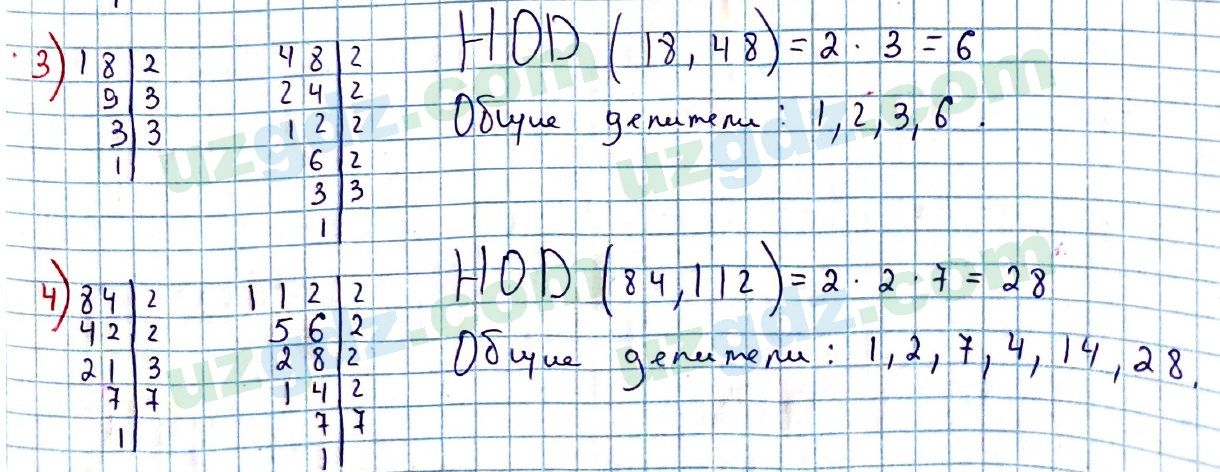 3) 18 | 2 48 | 2 НОД (18, 48) = 2 · 3 = 6
9 | 3 24 | 2
3 | 3 12 | 2 Общие делители: 1, 2, 3, 6.
1 | 6 | 2
3 | 3
1 |
4) 84 | 2 112 | 2 НОД (84, 112) = 2 · 2 · 7 = 28
42 | 2 56 | 2
21 | 3 28 | 2 Общие делители: 1, 2, 7, 4, 14, 28.
7 | 7 14 | 2
1 | 7 | 7
1 |
uzgdz.com
uzgdz.com
uzgdz.com
uzgdz.com